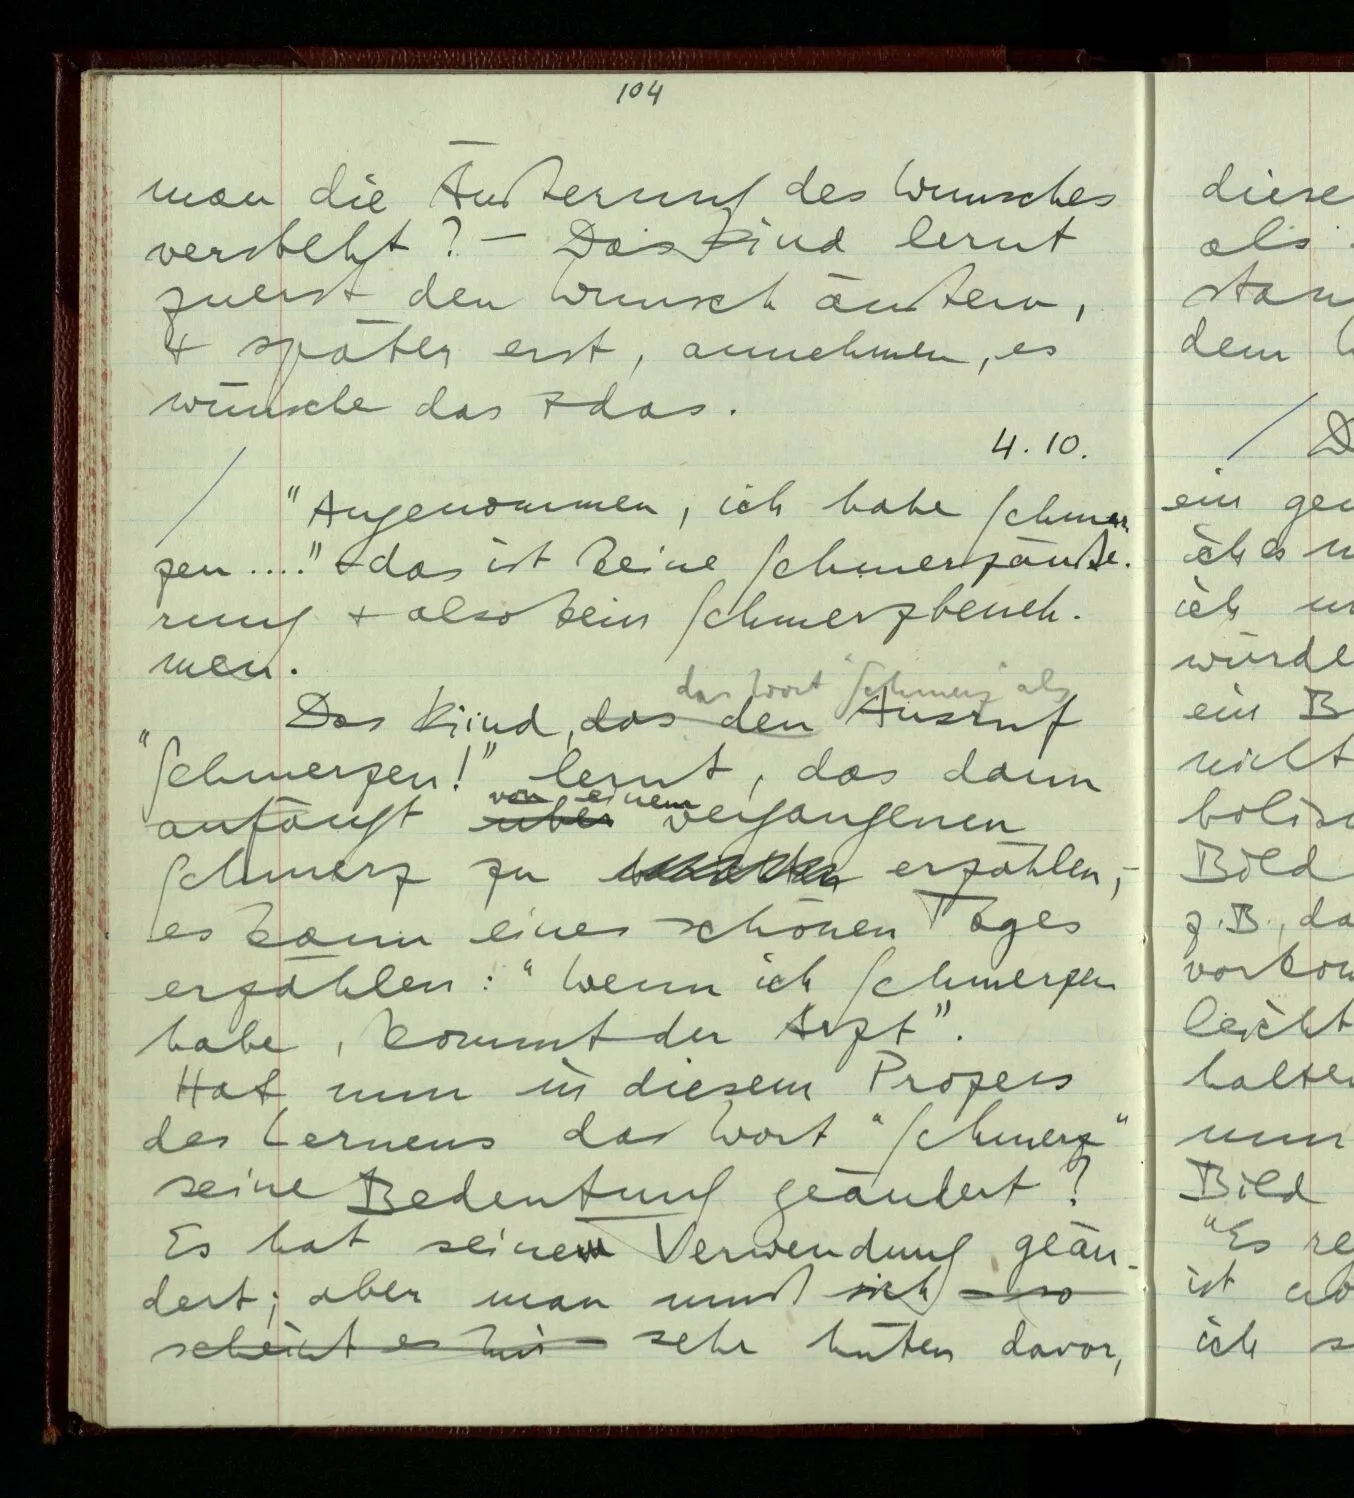 104
man die Äußerung des Wunsches
versteht? – Das Kind lernt
zuerst den Wunsch äußern,
+ später erst, annehmen, es
wünsche das + das.
4.10.
"Angenommen, ich habe Schmer
zen ...." + das ist keine Schmerzäuße-
rung + also kein Schmerzbeneh-
men.
das Wort "Schmerz" als
Das Kind, das den Ausruf
"Schmerzen!" lernt, das dann
von einem
anfängt über vergangenen
Schmerz zu erzählen, –
es kann eines schönen Tages
erzählen: "Wenn ich Schmerzen
habe, kommt der Arzt".
Hat nun in diesem Prozess
des Lernens das Wort "Schmerz"
seine Bedeutung geändert?
Es hat seine Verwendung geän-
dert; aber man muß sich – so
scheint es mir – sehr hüten davor,
diese
als
dem
D
ein
ich es
ich
würde
ein B
nicht
Bild
z.B., da
leicht
halten
nun
Bild
"Es re
ist
ich s